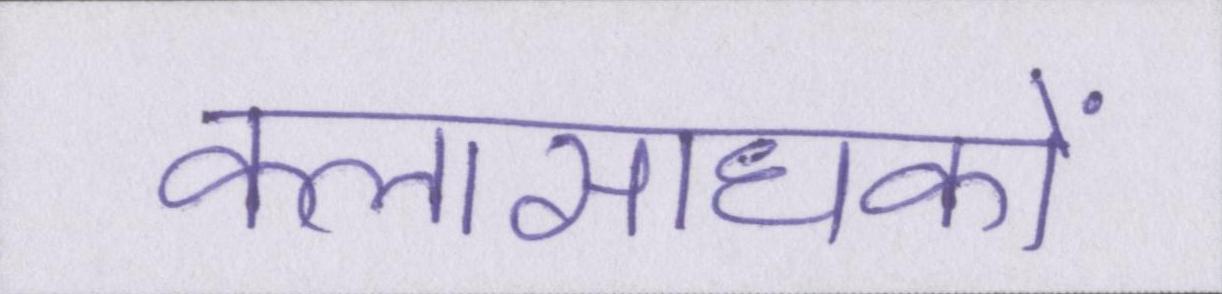 कलासाधकों